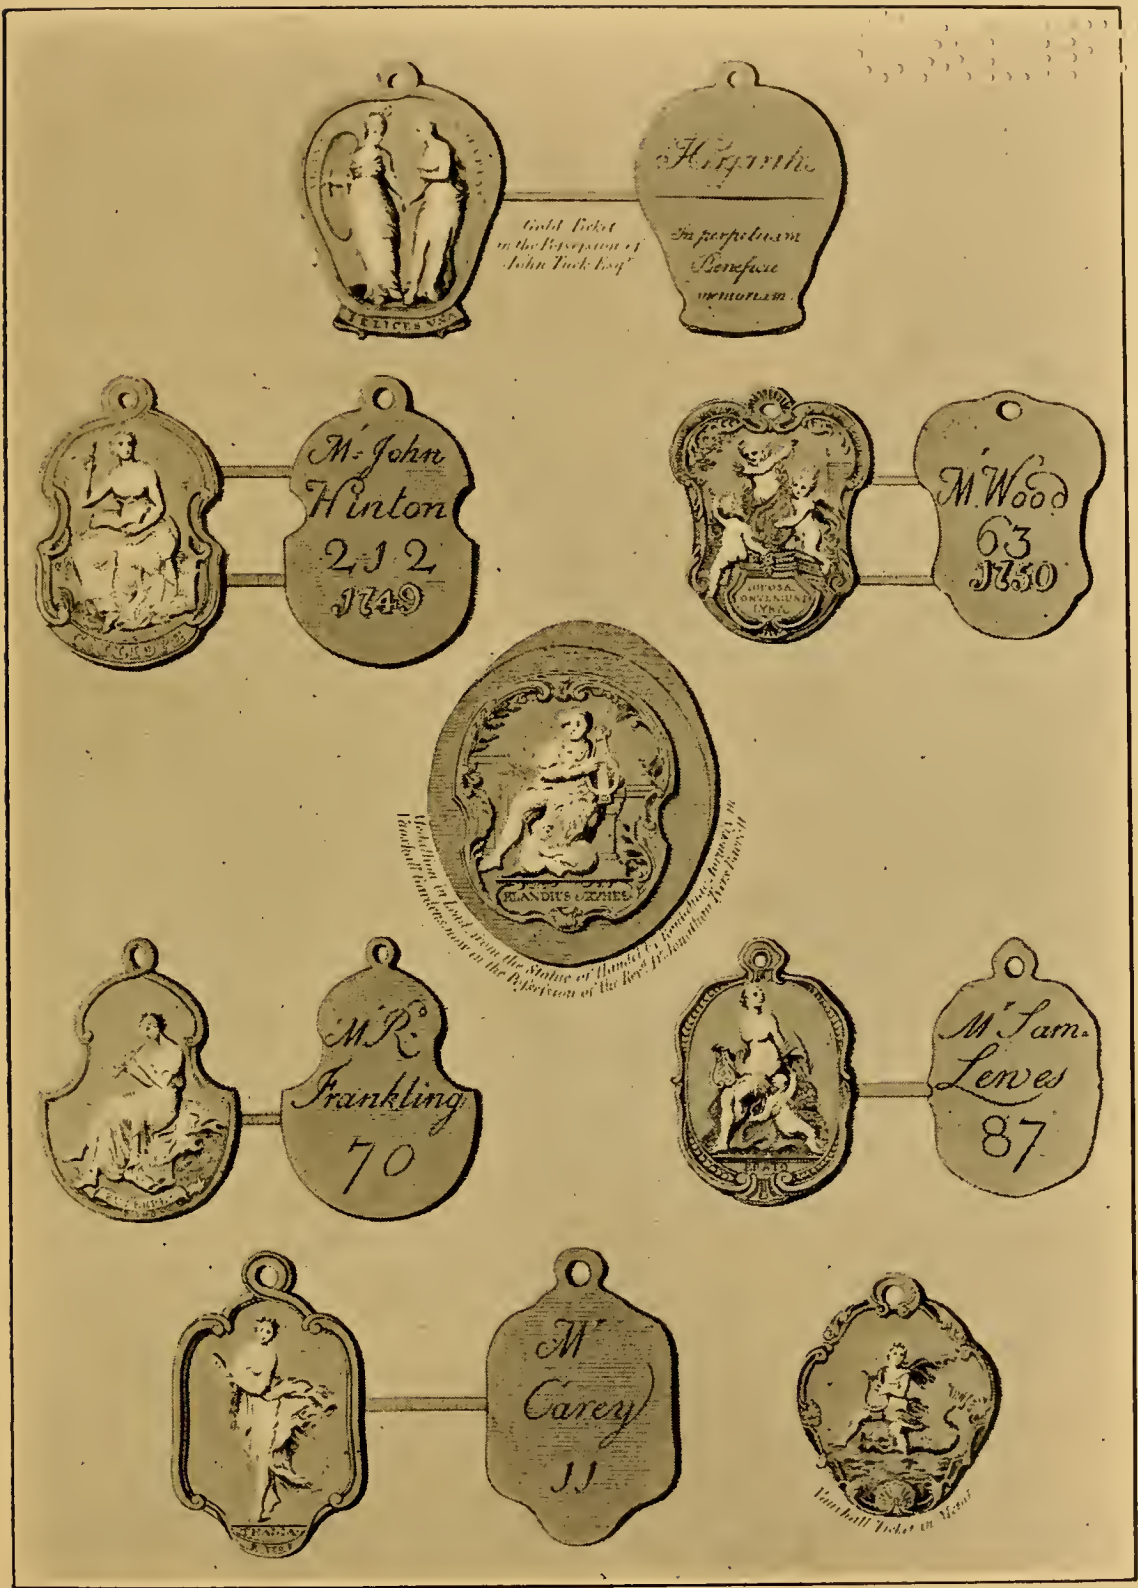 FELICES VNA
Hogarth
In perpetuam
Beneficii
memoriam.
Gold Ticket
in the Possession of
John Tuck Esqr.
CALLIOPE
Mr. John
Hinton
212
1749
JOCOSÆ
CONVENIUNT
LYRÆ
Mr. Wood
63
1750
BLANDIUS ORPHEO
Medallion in Lead, from the Statue of Handel by Roubiliac, formerly in
Vauxhall Gardens, now in the Possession of the Revd. Dr. Jonathan Tyers Barrett
Mr. R.
Frankling
70
ERATO
Mr. Sam.
Lewes
87
THALIA
Mr
Carey
11
Vauxhall Ticket in Metal